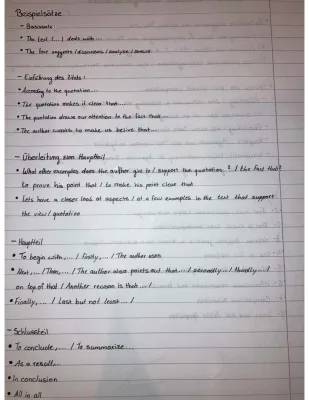 Beispielsätze
- Basissatz:
• The text (...) deals with...
• The text suggests / discusses / analyse /
- Einführung des Zitats:
• According to the quotation...
• The quotation makes it clear that...
• The quotation draws our attention to the fact that...
• The author wants to make us belive that...
- Überleitung zum Hauptteil
• What other examples does the author give to / support the quotation, ? / the fact that?
to prove his point that / to make his point clear that
• Lets have a closer look at aspects / at a few examples in the text that support
the view / quotation
- Hauptteil
• To begin with,... / Firstly,... / The author uses
• Next,... / Then,... / The author also points out that... / secondly... / thirdly... /
on top of that / Another reason is that... /
• Finally,... / Last but not least... /
- Schlussteil
• To conclude,... / To summarize...
• As a result,..
• In conclusion
• All in all